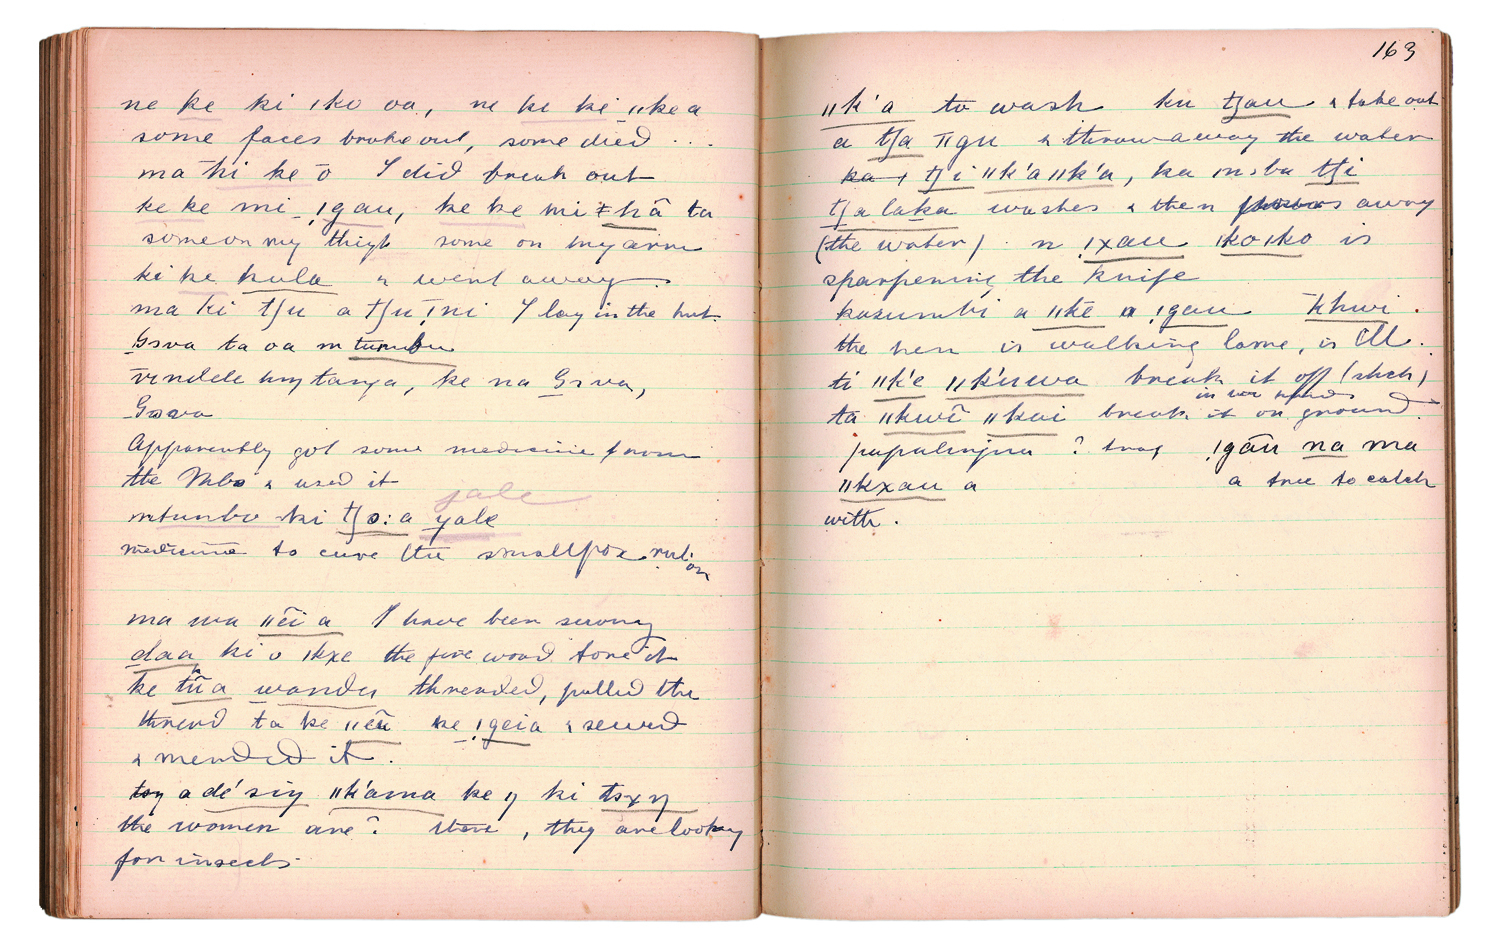 ne ke ki ıko oa, ne ke ki ıık̯e a
some faces broke out, some died ...
ma ki ke ō I did break out
ke ke mi ǃgau, ke ke mi ǂhâ ta
some on my thigh some on my arm
ki ke kula & went away.
ma ki tʃu a tʃu ǃni I lay in the hut
Gova ta oa mtumbu
vindele my tanga, ke na Gova,
Gova
Apparently got some medicine from
the Mbo & used it
yale
mtumbo ki tʃo: a yale
medicine to cure the smallpox rub on
ma wa ııẽi a I have been sewing
daa ki o ıkxe the fire wood tore it
ke tũa wandu threaded, pulled the
thread ta ke ııẽũ ke ǃgeia & sewed
& mended it.
a dé'siŋ ıık'ama ke ŋ ki tsxŋ
the women are? there, they are looking
for insects
163
ıık'a to wash ku tʃau & take out
a tʃa ıígu & throw away the water
ka tʃi ıık'a ıık'a, ka mba tʃi
tʃa laka washes & then throws away
(the water) n ǃxau ıkoıko is
sharpening the knife
kazumbi a ııkē a ǃgau khwi.
the hen is walking lame, is ill.
ti ıık'e ıık'uwa break it off (stick)
in our hands
ta ııkwî ııkai break it on ground.
papalinjua ? trap ǃgãu na ma
ııkxau a a tree to catch
with.